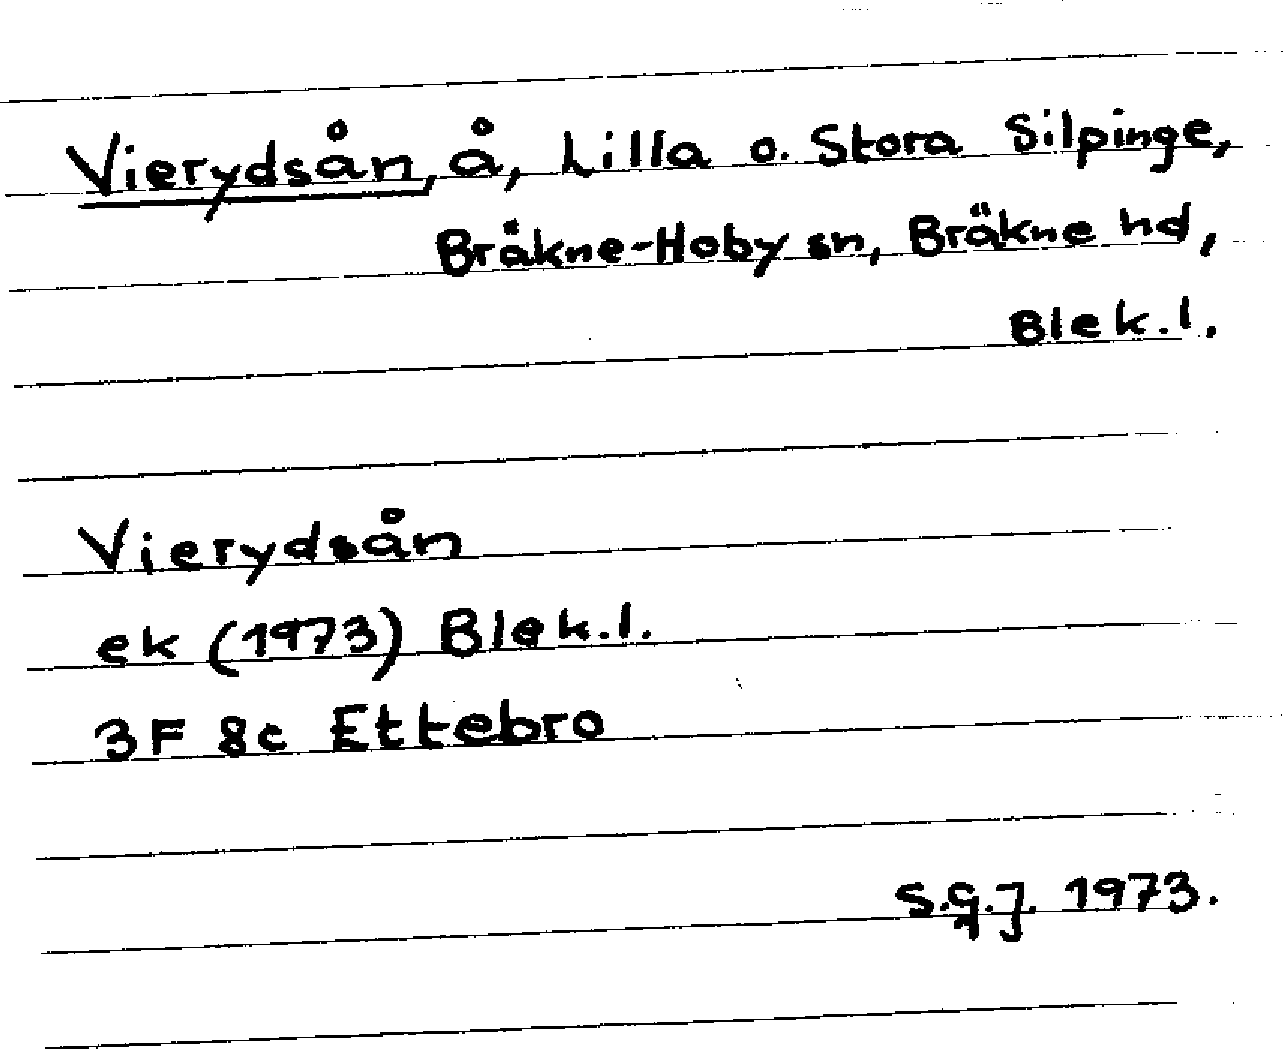 Vierydsån, å, Lilla o. Stora Silpinge,
Bräkne-Hoby sn, Bräkne hd,
Blek.l.
Vierydsån
ek (1973) Blek.l.
3F 8c Ettebro
S.G.J. 1973.